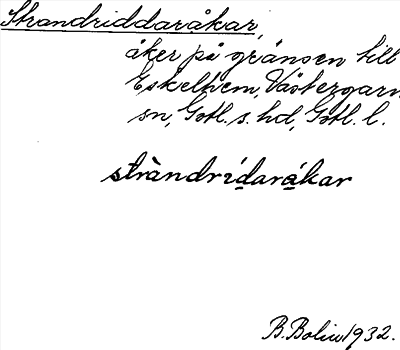 Strandriddaråkar,
åker på gränsen till
Eskelhem, Västergarn
sn, Gotl. s. hd, Gotl. l.
stràndrídaråkar
B. Bolin 1932.